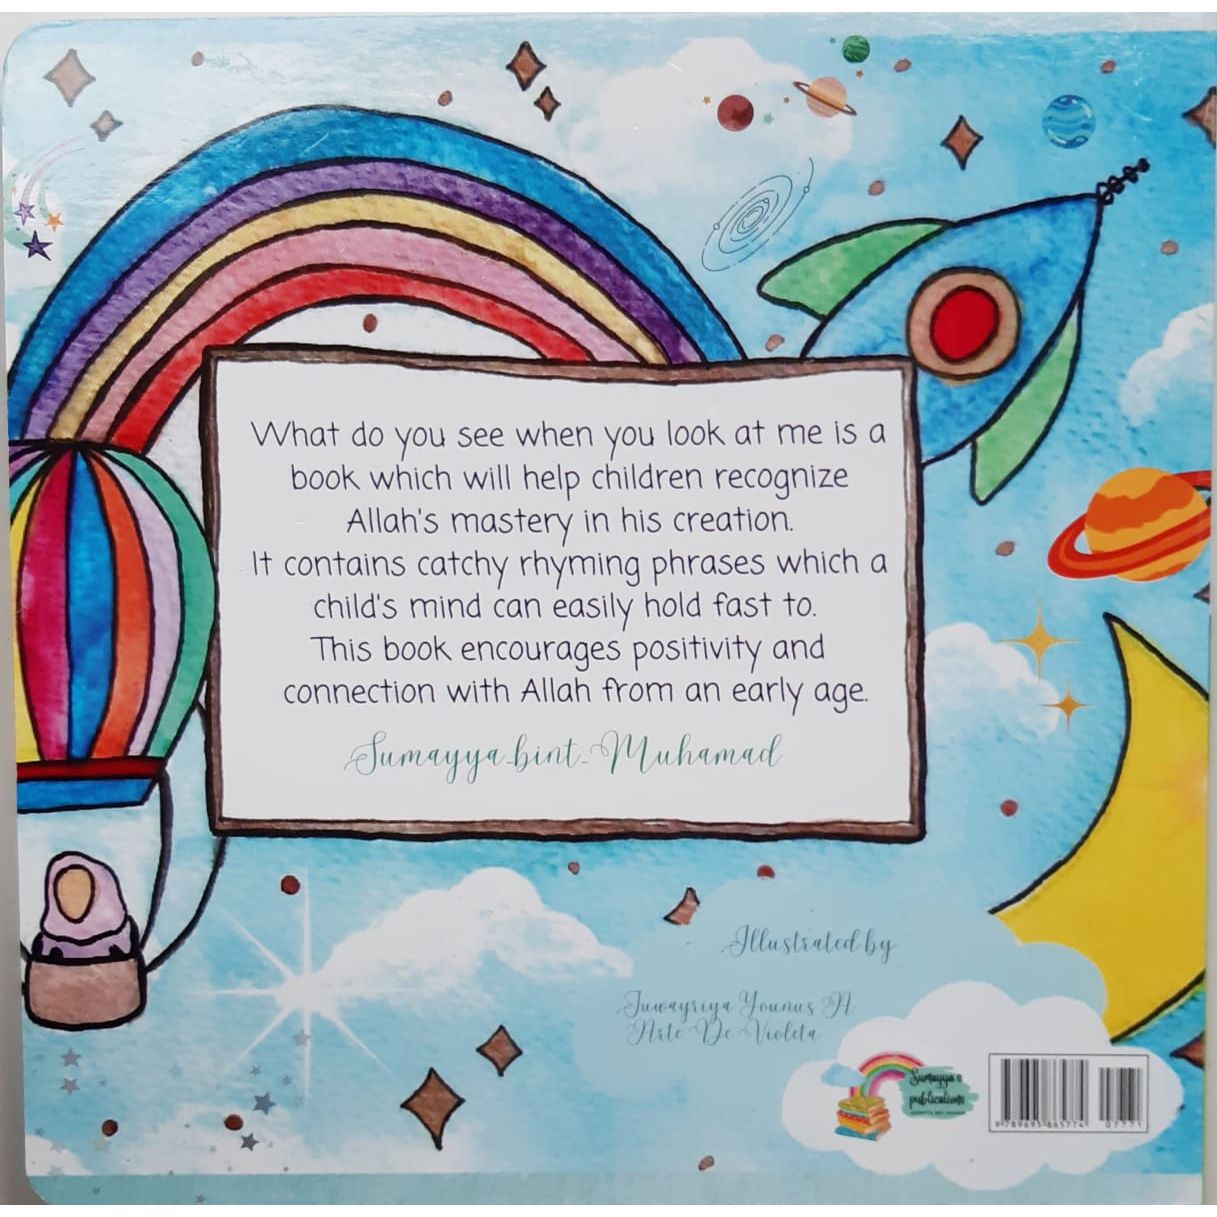 What do you see when you look at me is a
book which will help children recognize
Allah's mastery in his creation.
It contains catchy rhyming phrases which a
child's mind can easily hold fast to.
This book encourages positivity and
connection with Allah from an early age.
Sumayya-bint-Muhamad
Illustrated by
Juwayriya Younus A
Arte De Violeta
Sumayya's
publications
07771